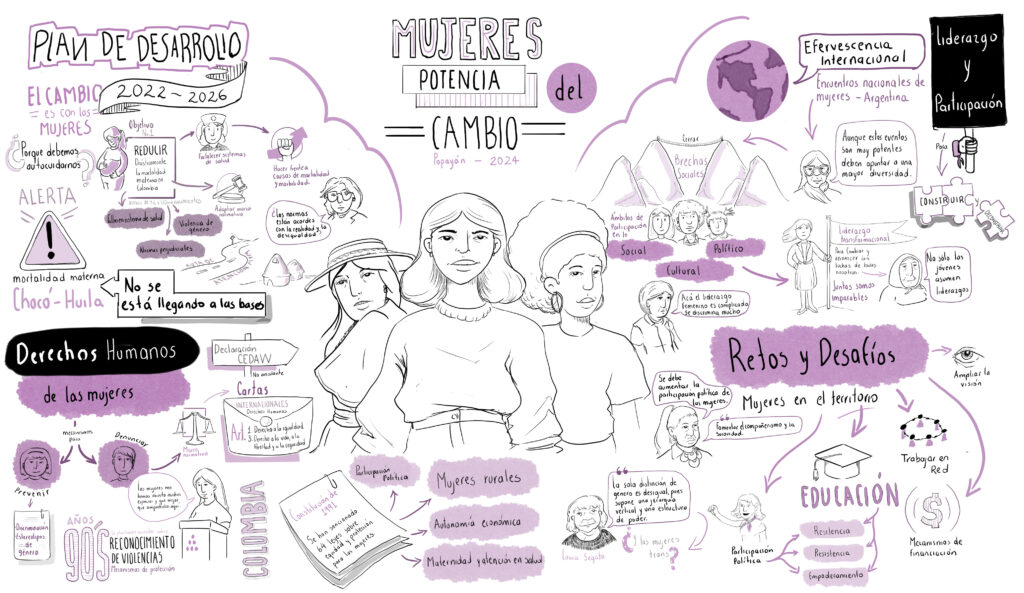 PLAN DE DESARROLLO
2022-2026
EL CAMBIO
ES CON LAS
MUJERES
¿Porque debemos
autocuidarnos?
Objetivo
No.1
REDUCIR
Drasticamente
la mortalidad
materna en
Colombia
Fortalecer sistemas
de salud
Hacer frente a
causas de mortalidad
y morbilidad.
Adoptar marco
normativo
Violencia de
género
Normas perjudiciales
¿Las normas
están acordes
con la realidad y la
desigualdad?
ALERTA
!
mortalidad materna
Chocó-Huila
No se
está llegando a las bases
MUJERES
POTENCIA
del
CAMBIO
Popayán - 2024
Efervescencia
Internacional
Encuentros nacionales de
mujeres - Argentina
Liderazgo
y
Participación
Para
CONSTRUIR
y
Aunque estos eventos
son muy potentes
deben apuntar a una
mayor diversidad.
Cerrar
Brechas
Sociales
Ámbitos de
Participación
en lo
Social
Político
Cultural
Liderazgo
transformacional
Para cambiar y
Juntas somos
imparables
No solo los
jóvenes
asumen
liderazgos
Acá el liderazgo
femenino es complicado,
se discrimina mucho
Derechos Humanos
de las mujeres
mecanismos
para
Prevenir
Denunciar
Discriminación
Estereotipos
de
género
Declaración
CEDAW
No obstante
Cartas
INTERNACIONALES
Derechos Humanos
Art.
1. Derecho a la igualdad.
3. Derecho a la vida, a la
libertad y a la seguridad
Marco
normativo
Las mujeres nos
hemos abierto muchos
espacios y qué mejor
que
AÑOS
90'S
RECONOCIMIENTO
DE VIOLENCIAS
Mecanismos de protección
COLOMBIA
Constitución de
1991
Se han sancionado
64 leyes sobre
equidad y protección
para las mujeres.
Participación
Política
Mujeres rurales
Autonomía económica
Maternidad y atención en salud
Retos y Desafíos
Mujeres en el territorio
Ampliar la
visión
Trabajar en
Red
Mecanismos de
financiación
EDUCACIÓN
Resiliencia
Resistencia
Empoderamiento
Participación
Política
Se debe
aumentar la
participación política de
las mujeres.
Fomentar el compañerismo y la
sororidad.
La sola distinción de
género es desigual, pues
supone una jerarquía
vertical y una estructura
de poder.
Laura Segato
¿Y las mujeres
trans?